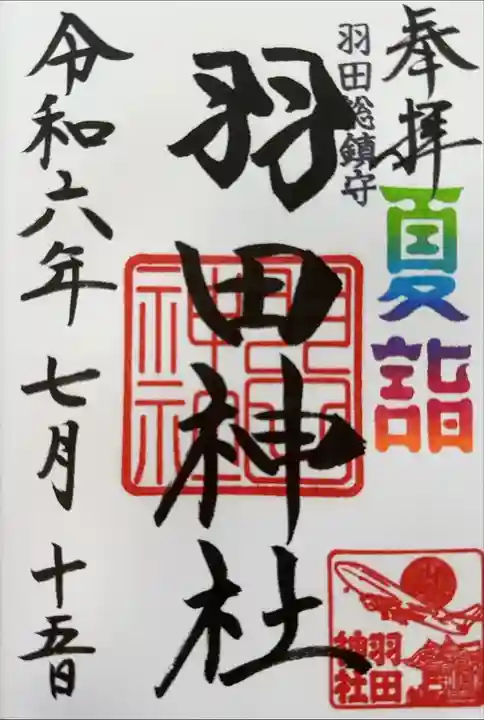 奉拝
夏詣
羽田総鎮守
羽田神社
令和六年七月十五日
羽田
神社